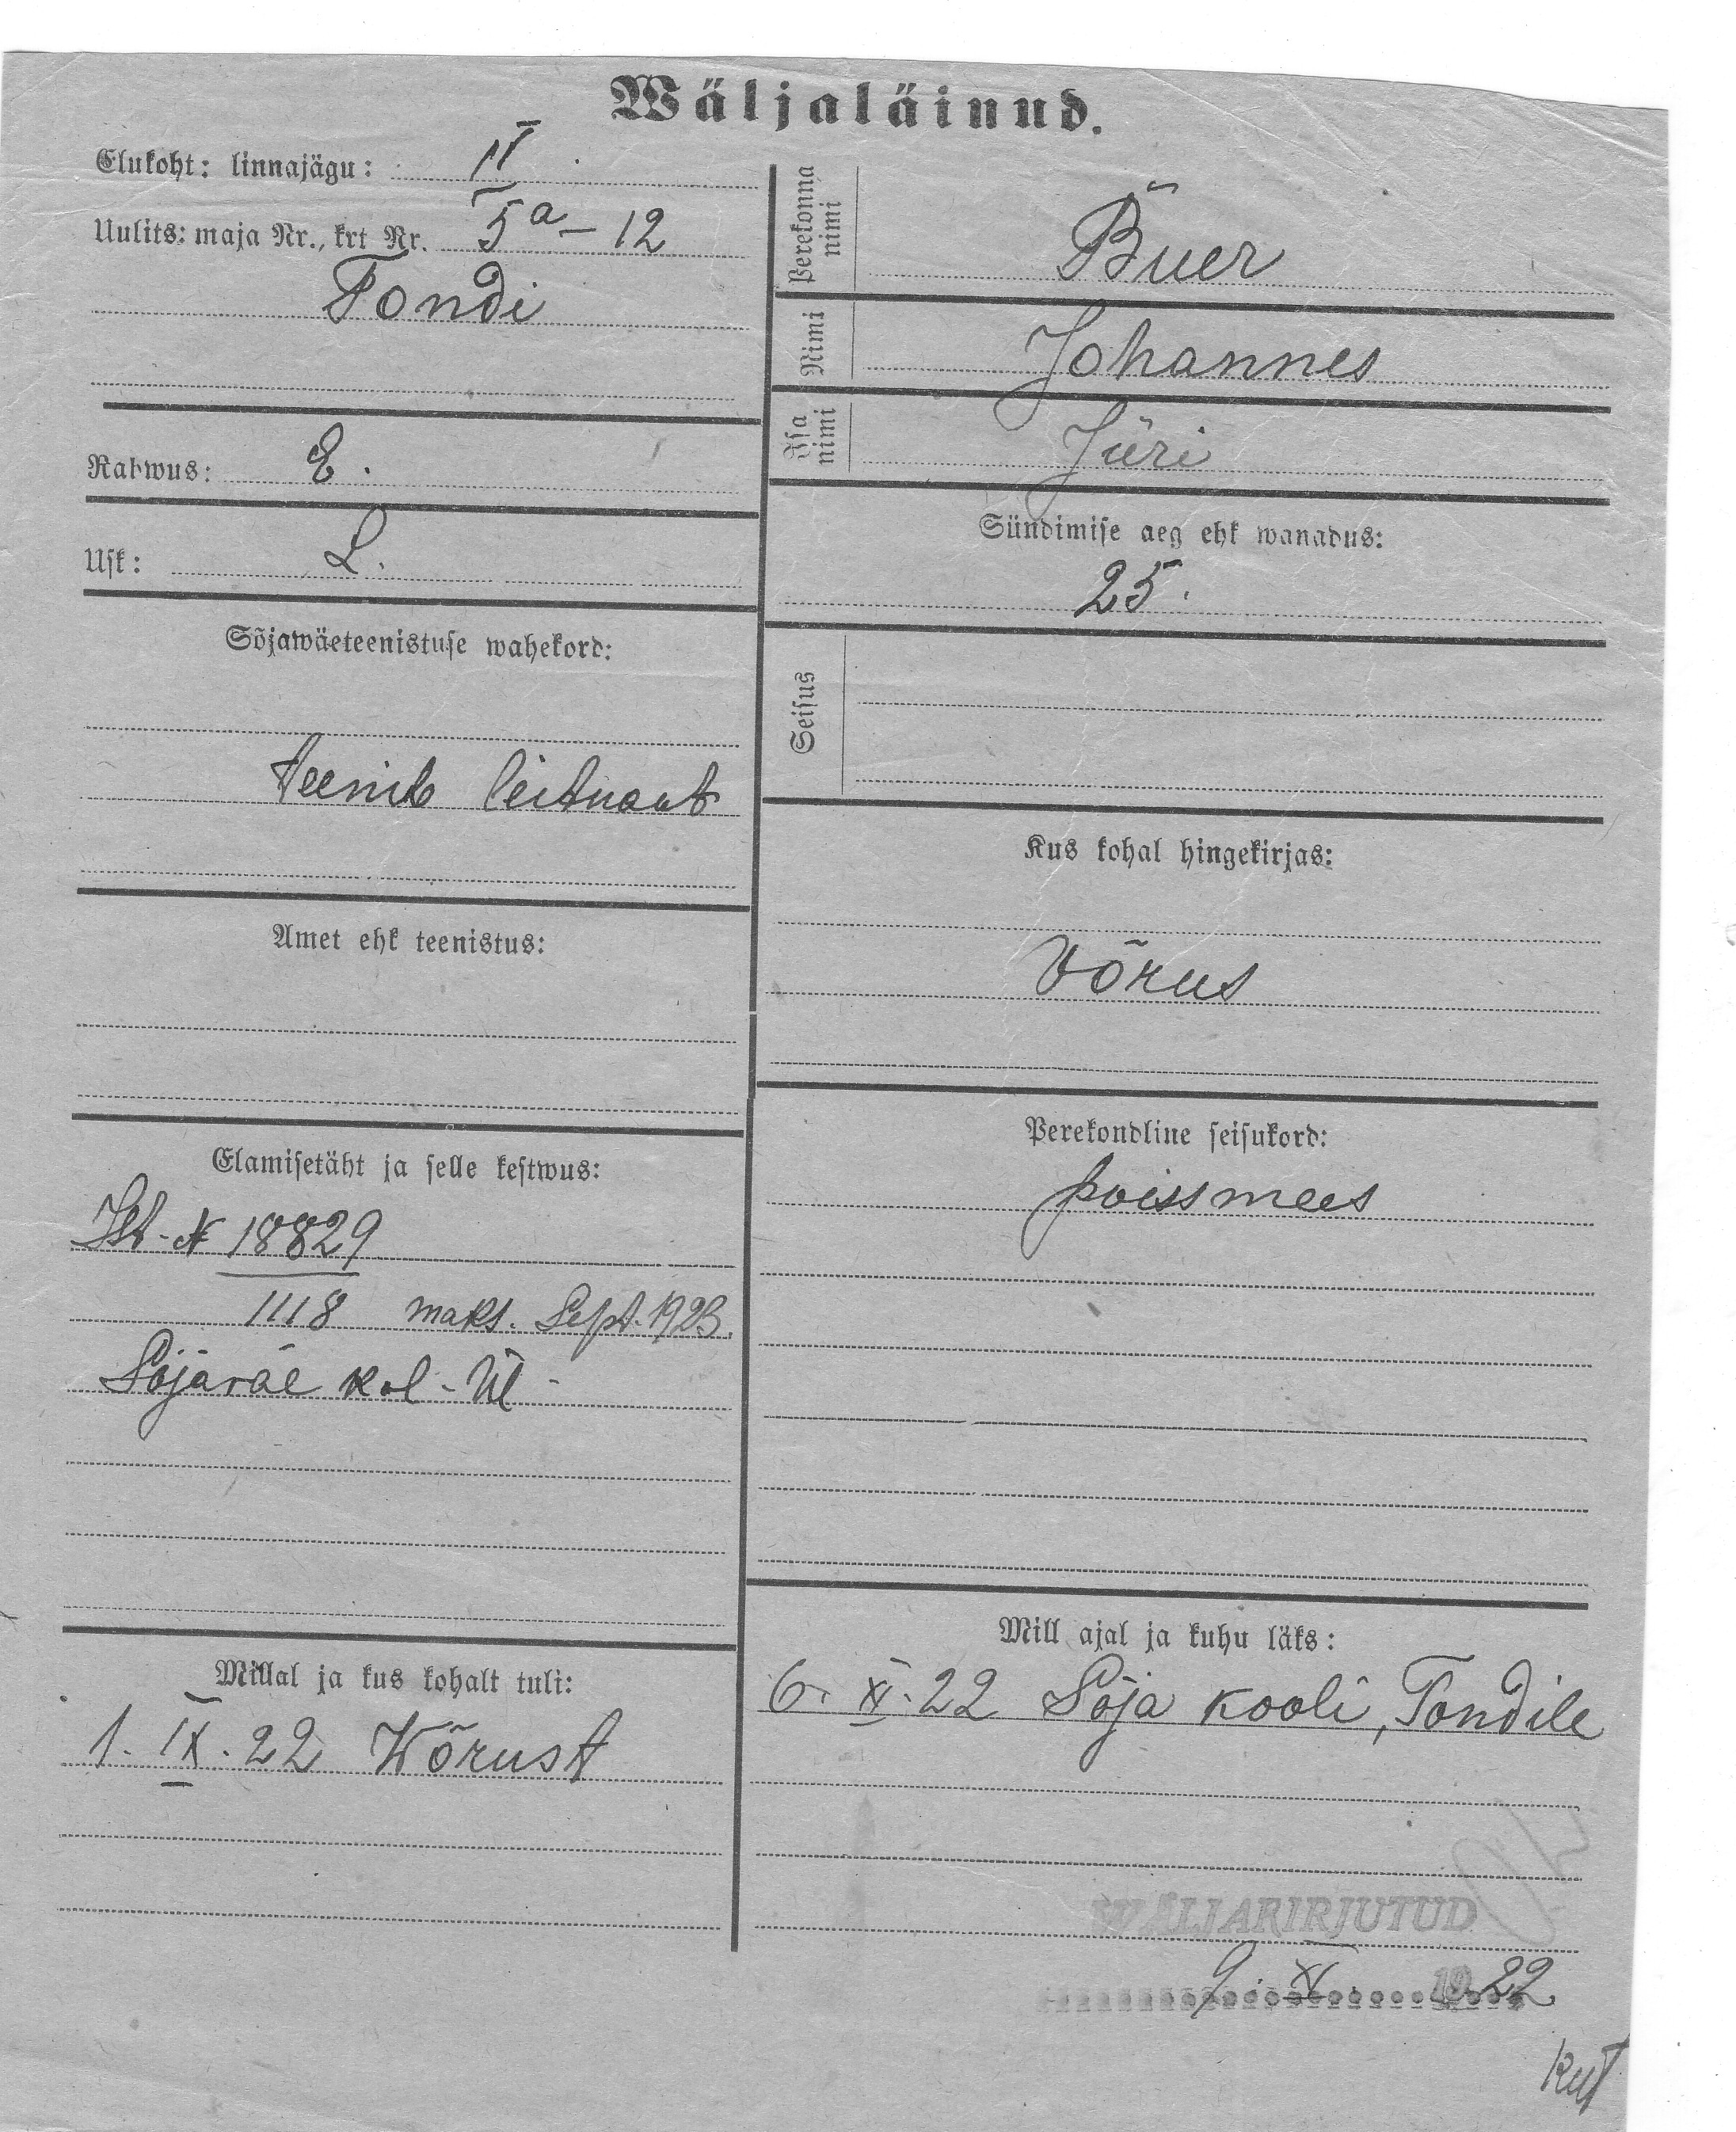 Wäljaläinud.
Elukoht: linnajägu: IV
Uulits: maja Nr., krt Nr. 5a – 12
Tondi
Rahwus: E.
Usk: L.
Sõjawäeteenistuse wahekord:
teenib leitnant
Amet ehk teenistus:
Elamisetäht ja selle kestwus:
№ 18829
1118 maks. Sept. 1923.
Sõjaväe kol - Ül -
Millal ja kus kohalt tuli:
1. IX. 22 Wõrust
Perekonna nimi
Buer
Nimi
Johannes
Isa nimi
Jüri
Sündimise aeg ehk wanadus:
25.
Seisus
Kus kohal hingekirjas:
Võrus
Perekondline seisukord:
poissmees
Mill ajal ja kuhu läks:
6. XI. 22 Sõja kooli, Tondile
WÄLJAKIRJUTUD
9. XI. 1922